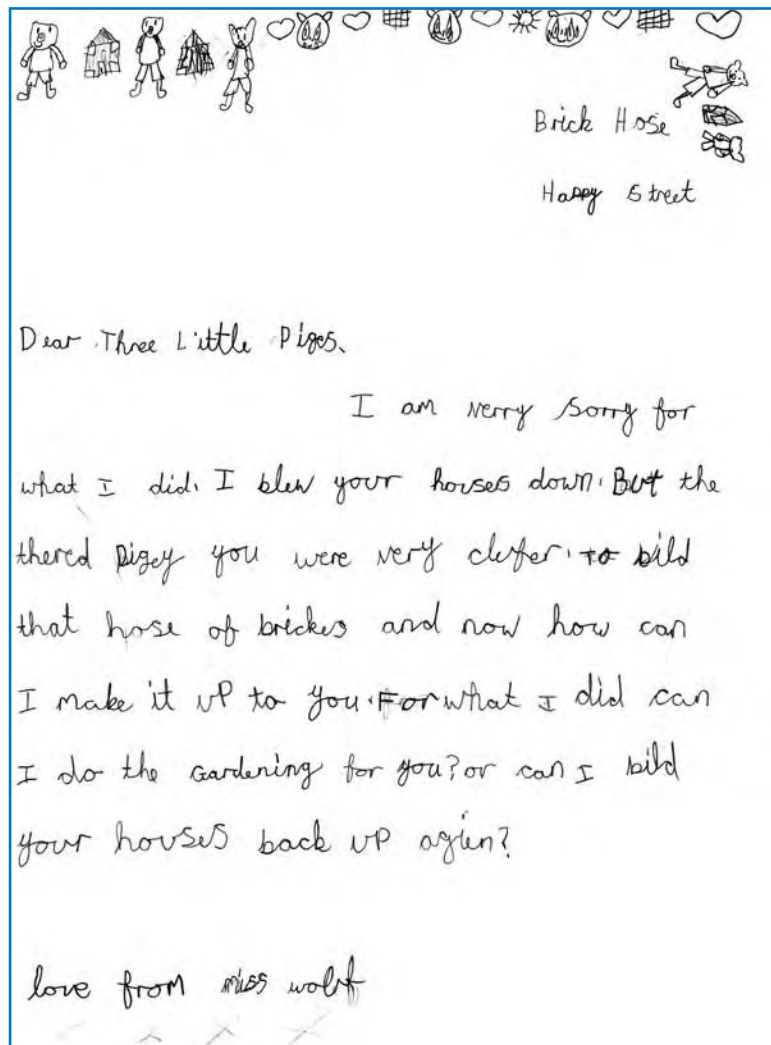 Brick Hose
Happy Street
Dear Three Little Piges.
I am verry sorry for
what I did. I blew your houses down. But the
thered pigey you were very clefer. to bild
that hose of brickes and now how can
I make it up to you. For what I did can
I do the Gardening for you? or can I bild
your houses back up agien?
love from miss wolf